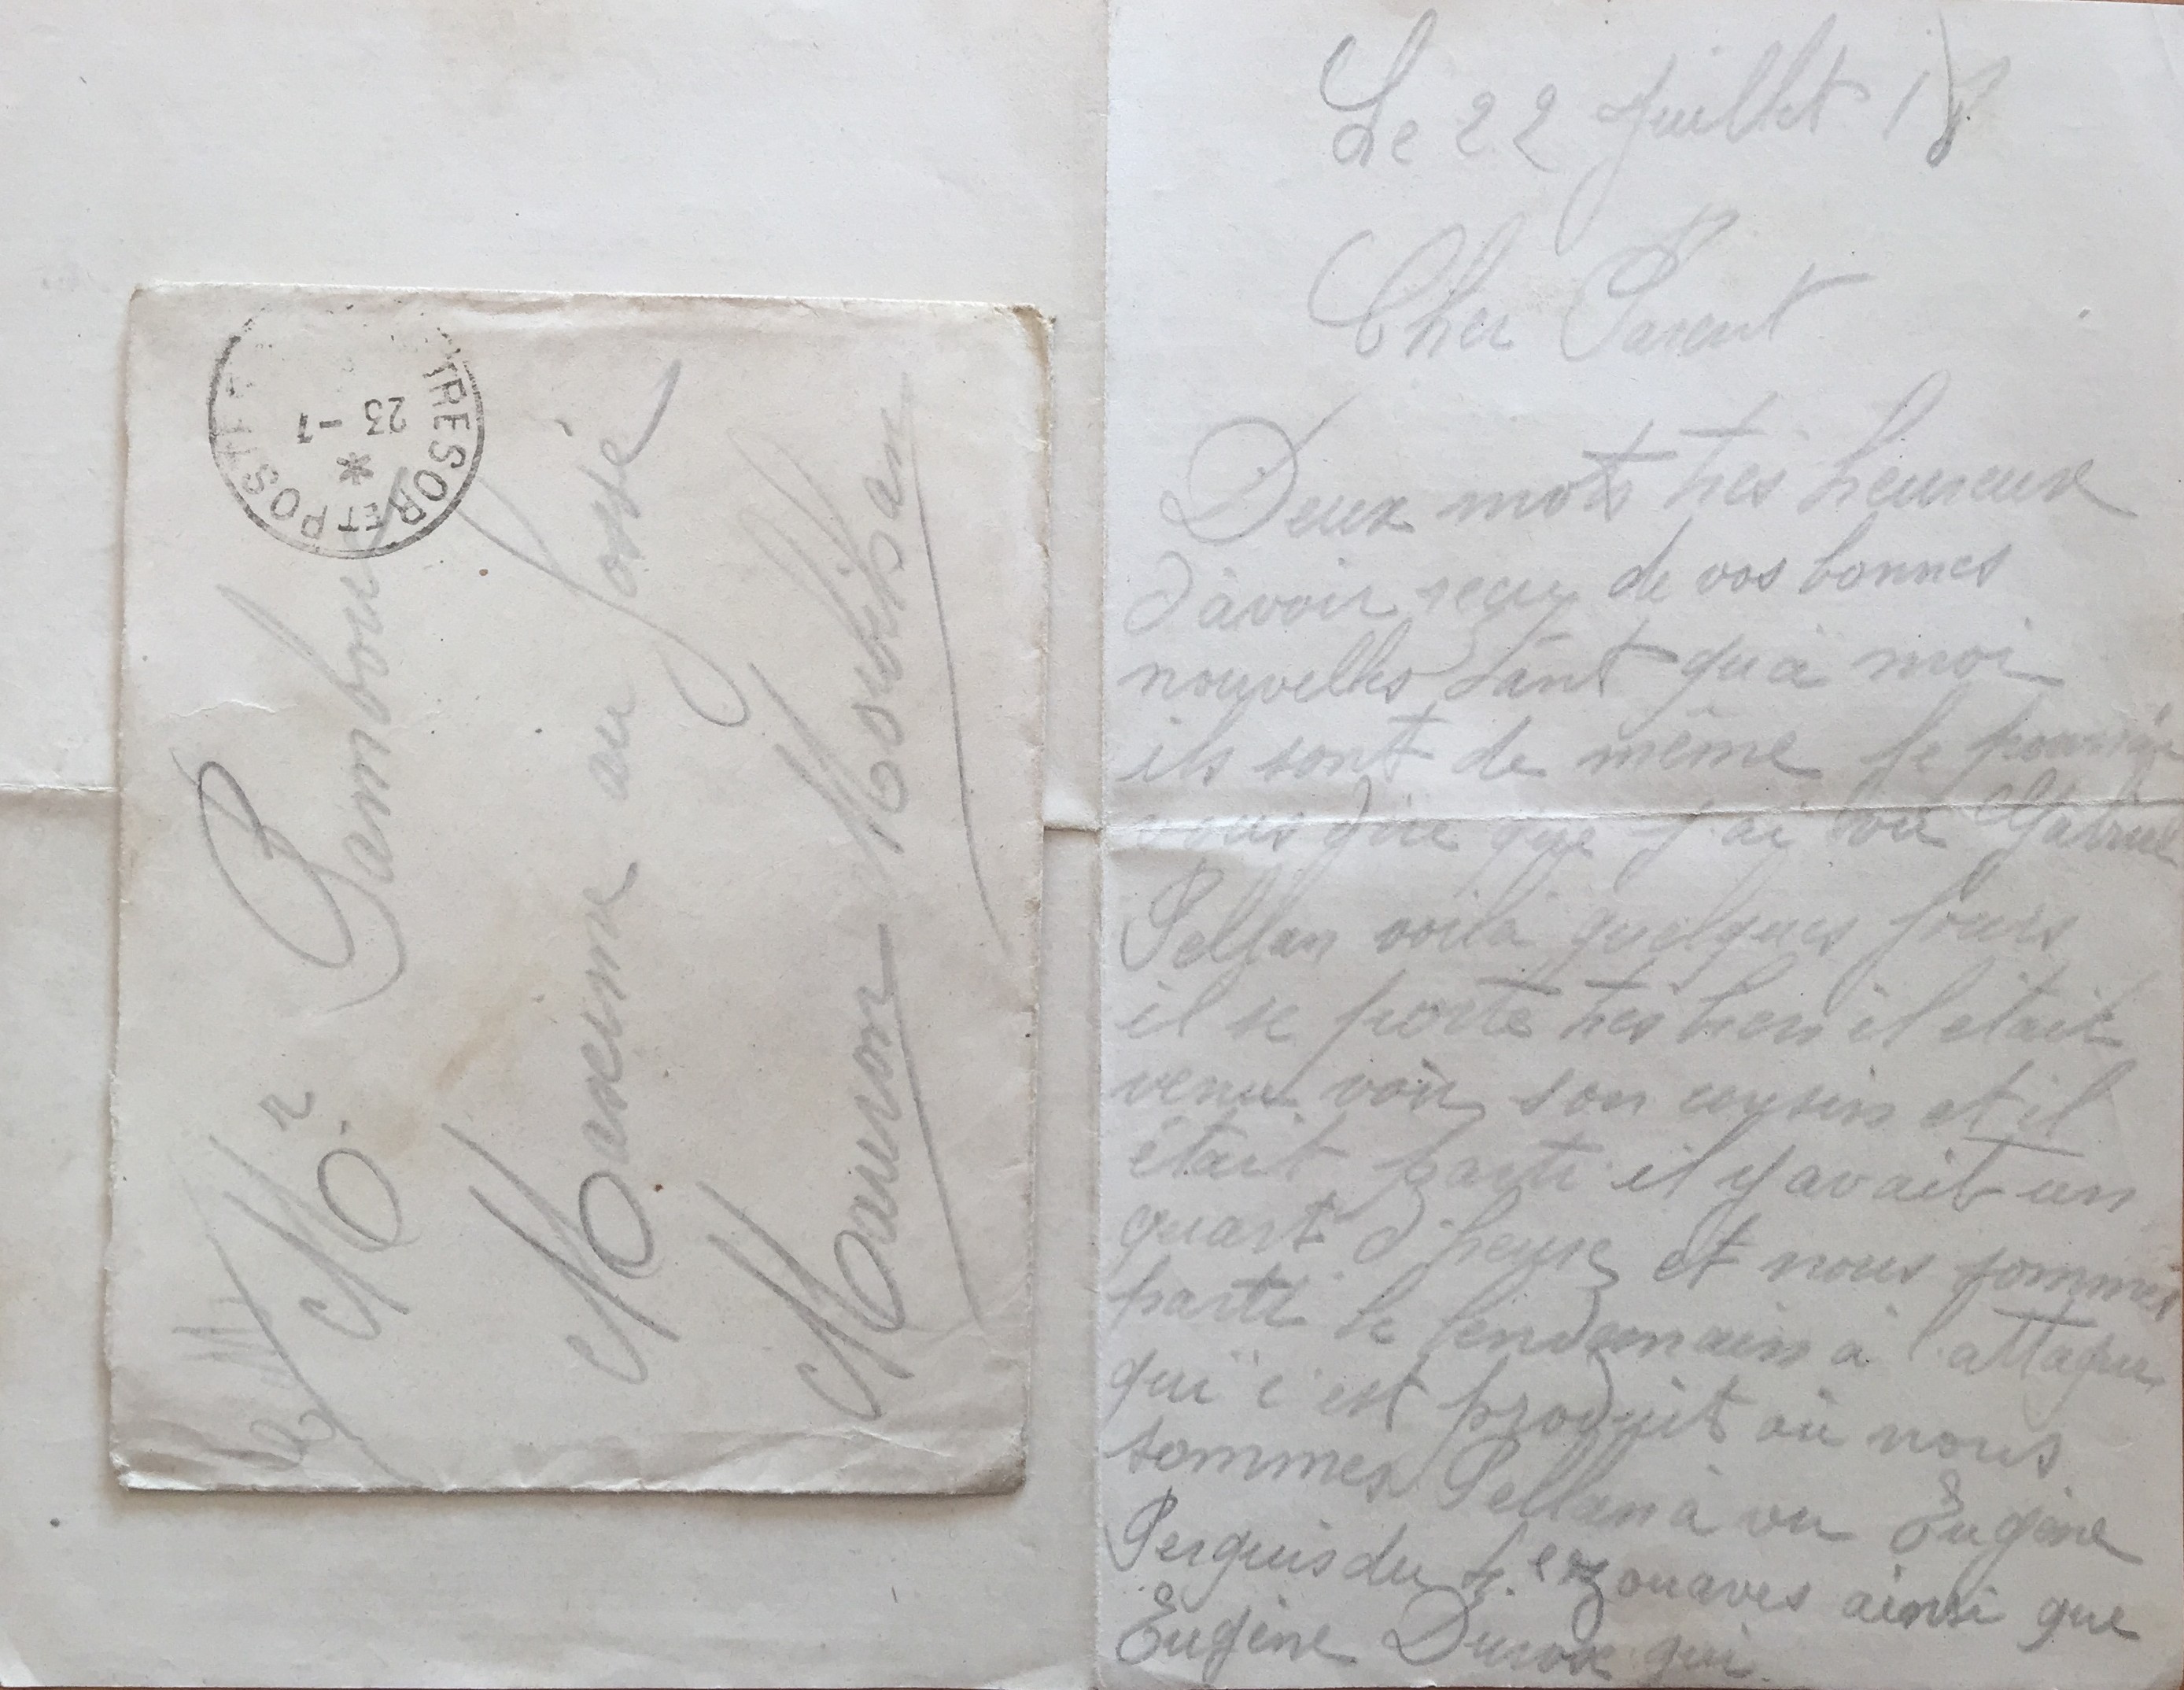 TRESOR ET POSTES
23 - 7
*
Mr Pambouc
Maxime au Fossé
Mauron Morbihan
Le 22 Juillet 18
Cher Parent
Deux mots très heureux
d'avoir reçu de vos bonnes
nouvelles tant qu'à moi
ils sont de même je pourrai
vous dire que j'ai vu Gabriel
Pellan voilà quelques jours
il se porte très bien il était
venu voir son cousin et il
était parti il y avait un
quart d'heure et nous sommes
parti le lendemain à l'attaque
qui c'est produit où nous
sommes Pellan à vu Eugène
Perquis du 4.e zouaves ainsi que
Eugène Duros qui